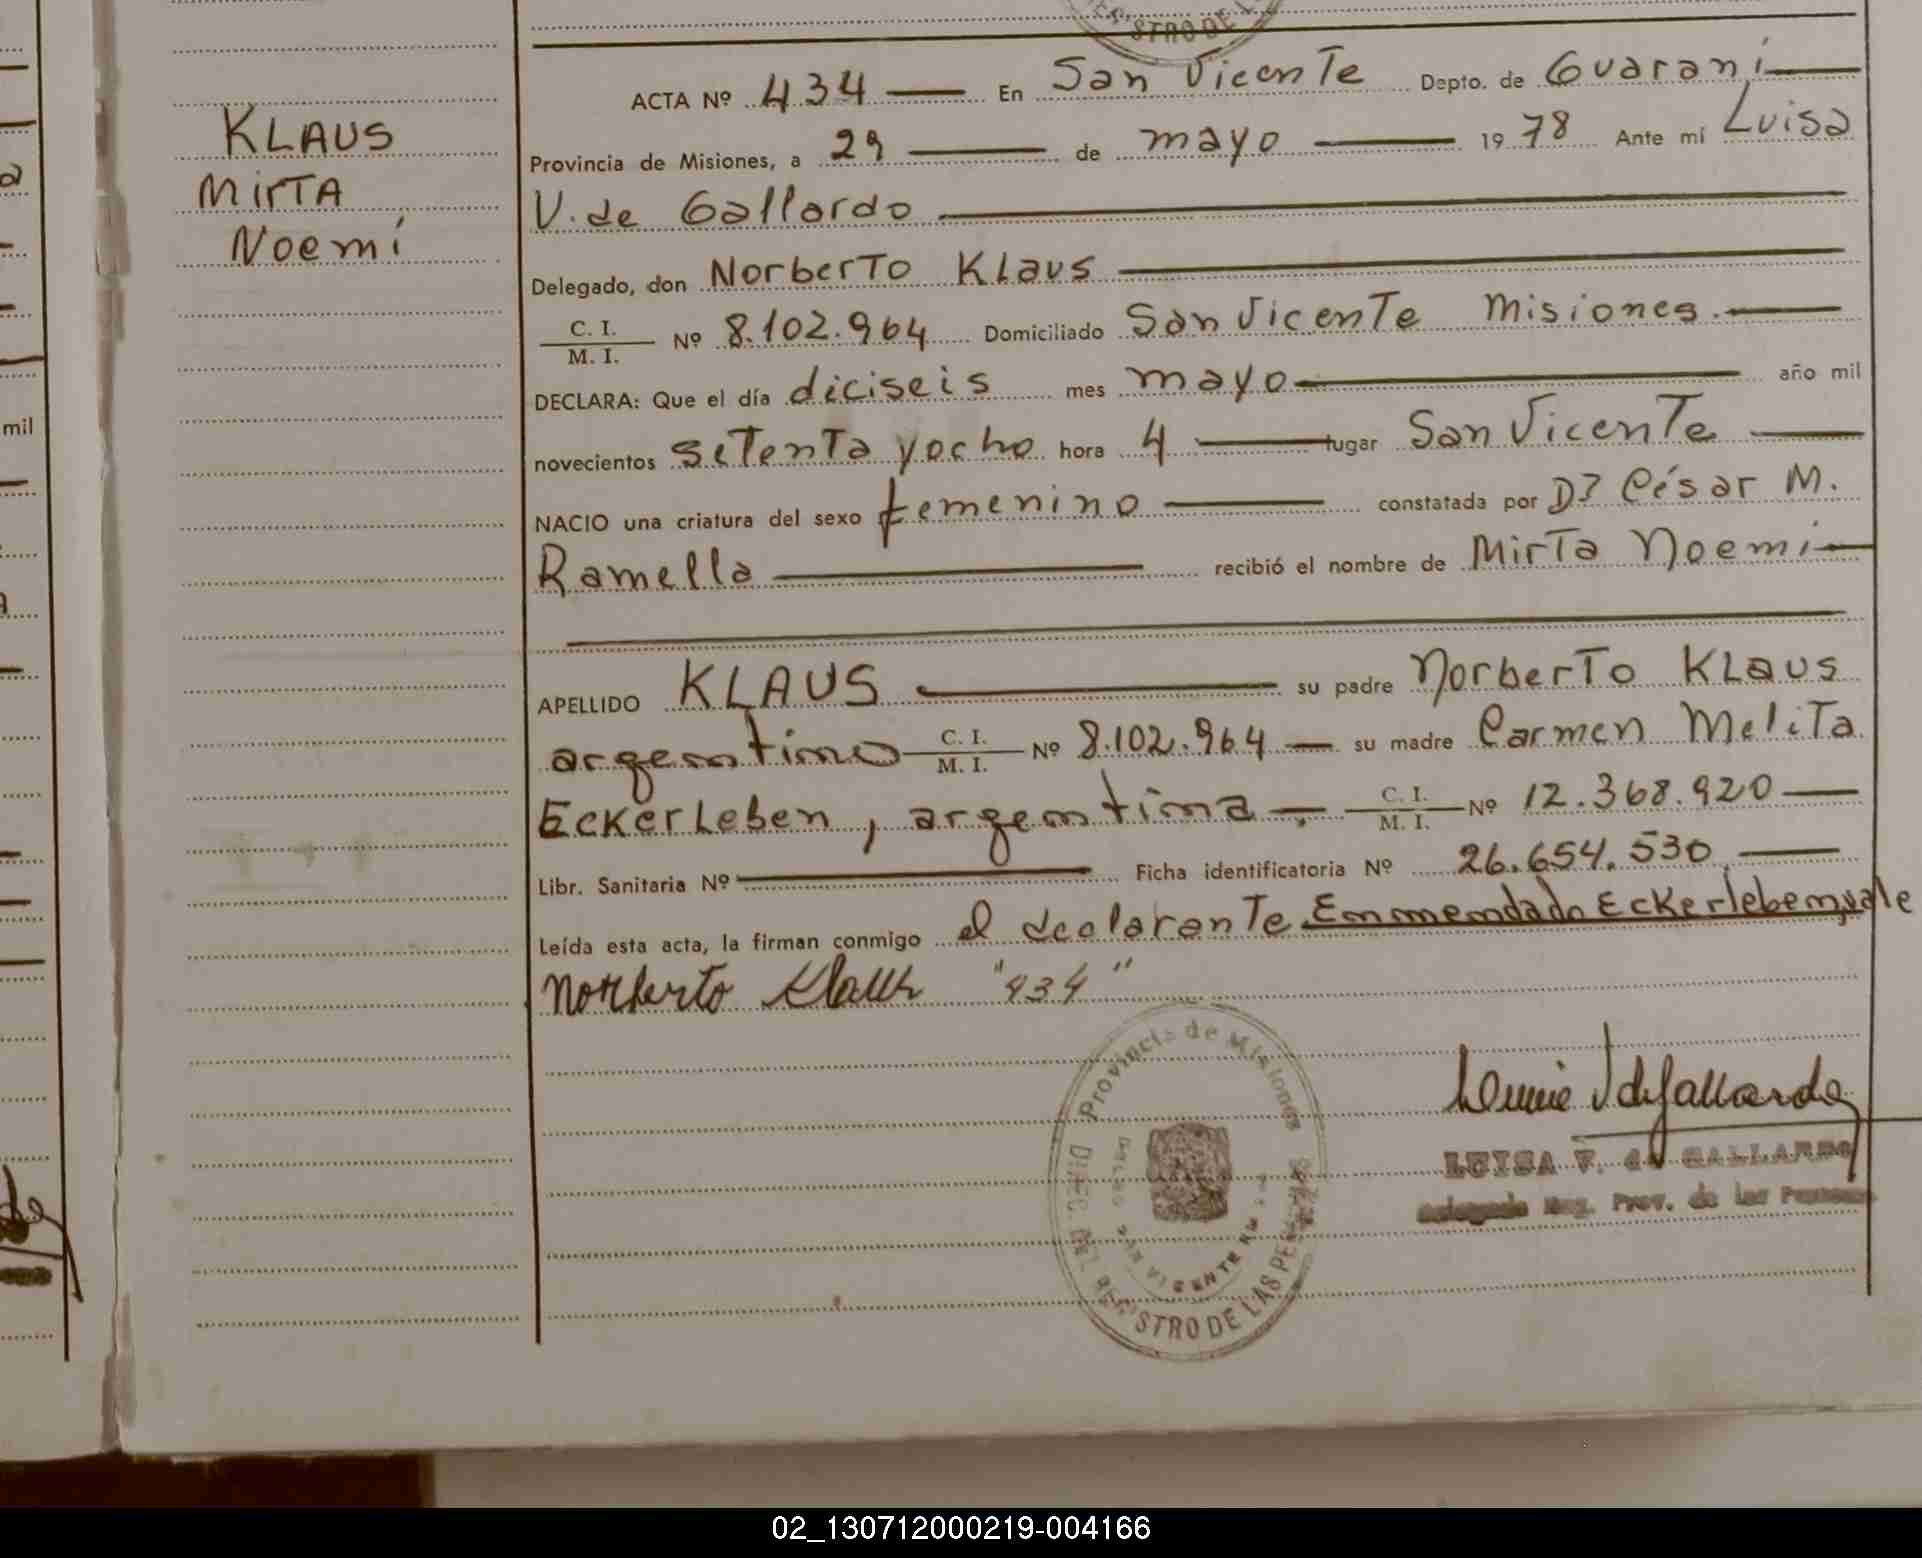 STRO DE L
KLAUS
MIRTA
Noemí
ACTA Nº 434 En San Vicente Depto. de Guaraní
Provincia de Misiones, a 29 de mayo 1978 Ante mí Luisa
V. de Gallardo
Delegado, don Norberto Klaus
C. I.
M. I. Nº 8.102.964 Domiciliado San Vicente Misiones.
DECLARA: Que el día diciseis mes mayo año mil
novecientos setenta y ocho hora 4 lugar San Vicente
NACIO una criatura del sexo femenino constatada por Dr César M.
Ramella recibió el nombre de Mirta Noemí
APELLIDO KLAUS su padre Norberto Klaus
argentino C. I. M. I. Nº 8.102.964 su madre Carmen Melita
Eckerleben, argentina C. I. M. I. Nº 12.368.920
Libr. Sanitaria Nº Ficha identificatoria Nº 26.654.530
Leída esta acta, la firman conmigo el declarante Enmendado Eckerleben, vale
Norberto Klaus "434"
Provincia de Misiones
DIREC. DEL REGISTRO DE LAS PERSONAS
SAN VICENTE
Luisa V de Gallardo
LUISA V. de GALLARDO
Delegada Reg. Prov. de las Personas
mil
02_130712000219-004166